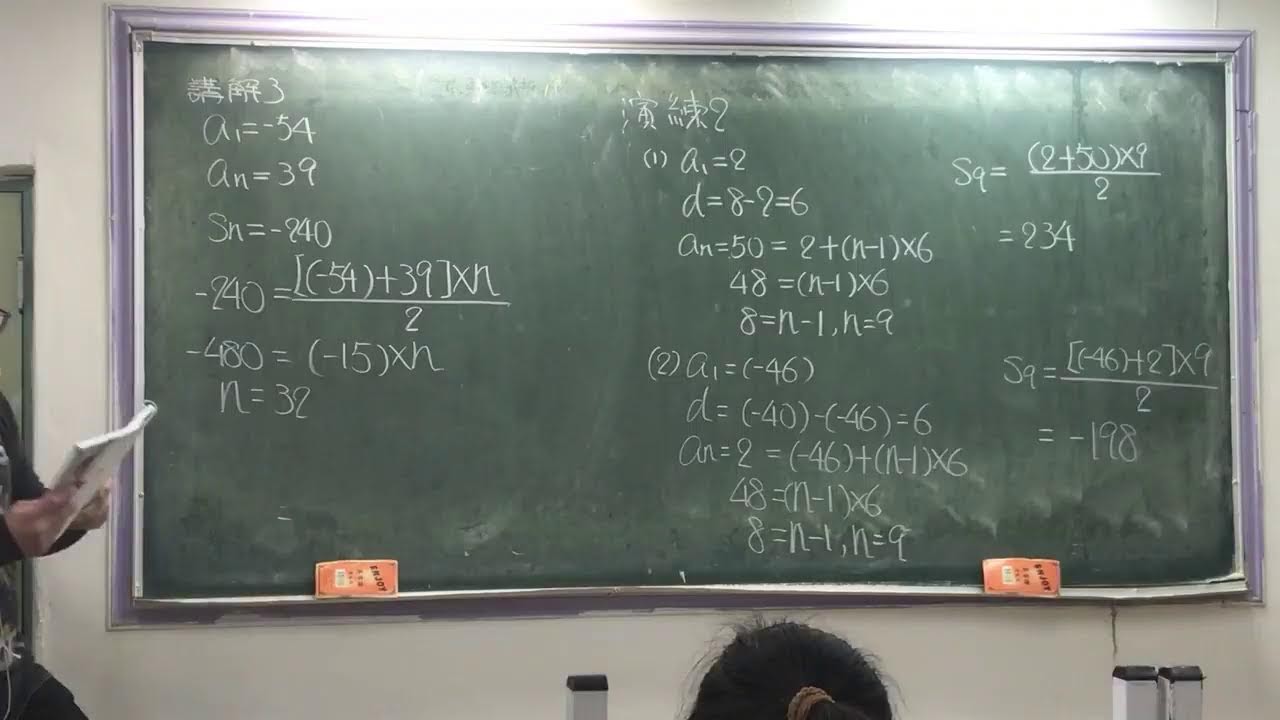 講解3
a₁=-54
aₙ=39
Sₙ=-240
-240=[(-54)+39]×n/2
-480=(-15)×n
n=32
=
演練2
(1) a₁=2
d=8-2=6
aₙ=50=2+(n-1)×6
48=(n-1)×6
8=n-1,n=9
S₉=(2+50)×9/2
=234
(2) a₁=(-46)
d=(-40)-(-46)=6
aₙ=2=(-46)+(n-1)×6
48=(n-1)×6
8=n-1,n=9
S₉=[(-46)+2]×9/2
=-198
ENJOY
ENJOY